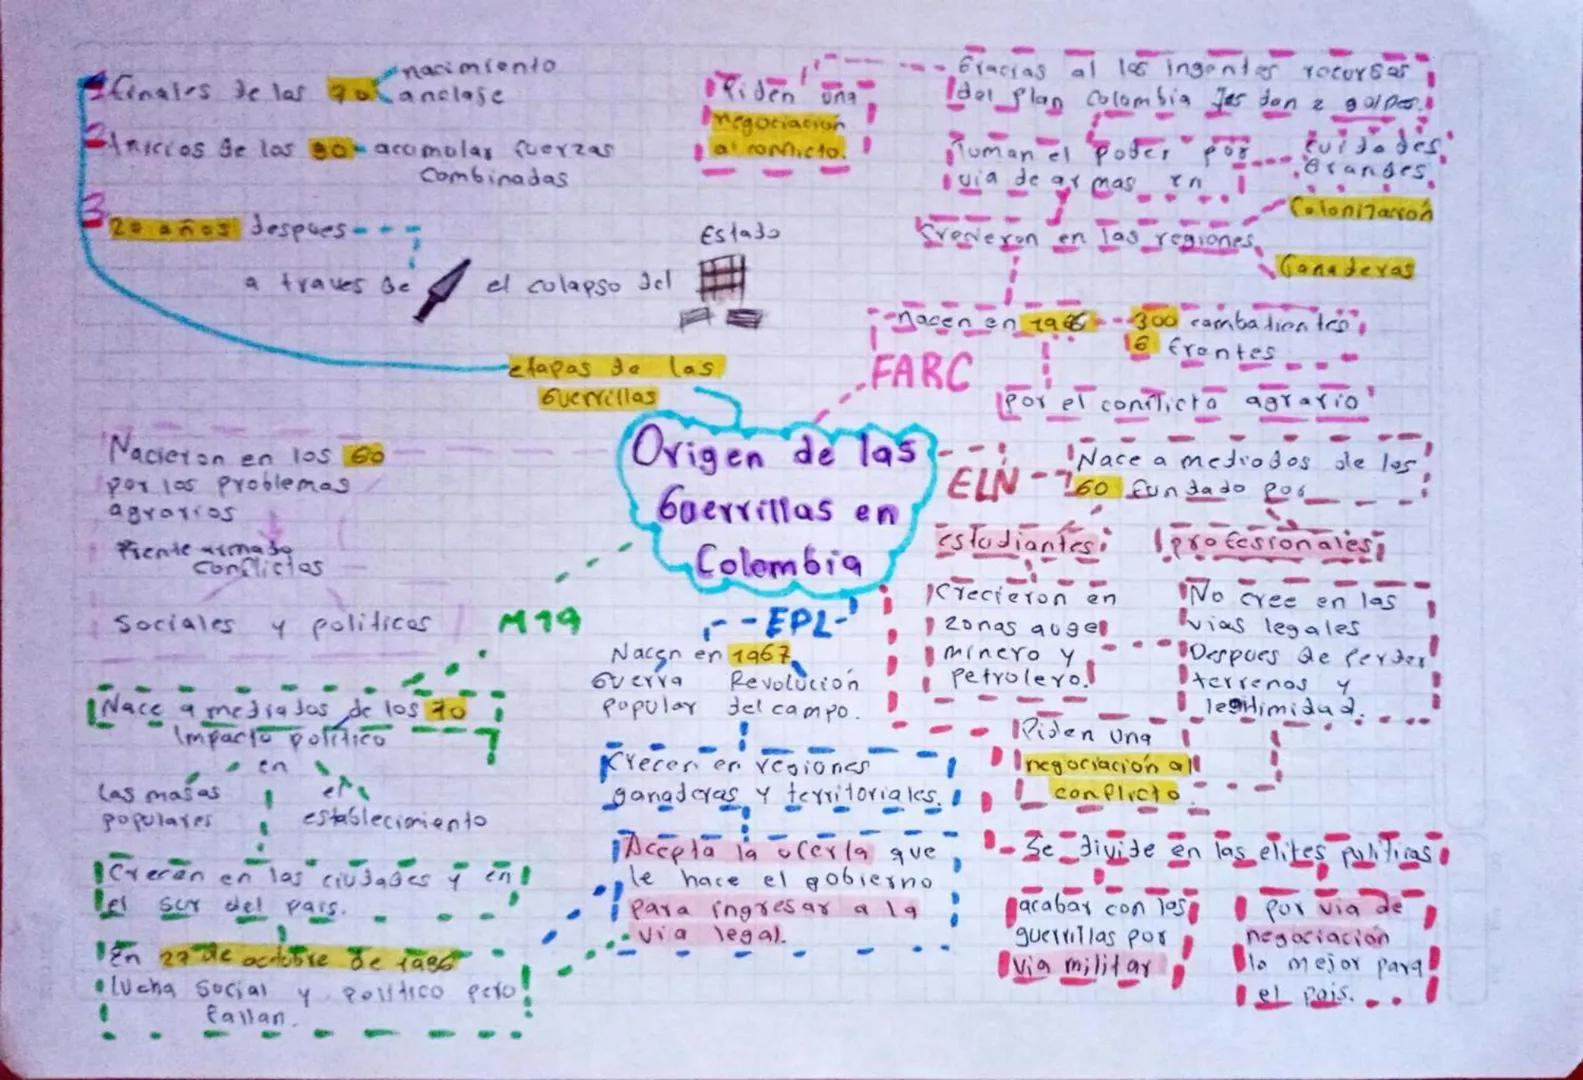 Origen de las
Guerrillas en
Colombia
etapas de las
Guerrillas
1 finales de las 70
nacimiento
anclase
2 Inicios de las 80 acomolar fuerzas
combinadas
3
20 años despues
a traves de
el colapso del
Estado
Piden una
negociación
al conflicto.
Gracias al los ingentes recursas
del Plan Colombia les dan 2 golpes.
Tuman el poder por
via de armas en
Cuidades
Grandes.
Crecieron en las regiones
Colonización
Ganaderas
Nacen en 1966
300 combatientes
6 frentes
FARC
por el conflicto agrario
ELN
Nace a mediodos de los
60 fundado por
estudiantes
profesionales
Crecieron en
zonas auge
minero y
petrolero.
No cree en las
vias legales
Despues de perder
terrenos y
legitimidad.
Piden una
negociación al
conflicto.
Se divide en las elites politicas
acabar con las
guerrillas por
via militar
por via de
negociación
lo mejor para
el pais.
Nacieron en los 60
por los problemas
agrarios
Frente armado
conflictos
Sociales y politicos
M19
Nace a mediados de los 70
Impacto político
en
las masas
populares
el
establecimiento
Crecen en las ciudades y en
el sur del pais.
En 27 de octubre de 1986
lucha social y politico pero
fallan.
EPL
Nacen en 1967
Guerra
popular
Revolución
del campo.
Crecen en regiones
ganaderas y territoriales.
Acepta la oferta que
le hace el gobierno
para ingresar a la
via legal.